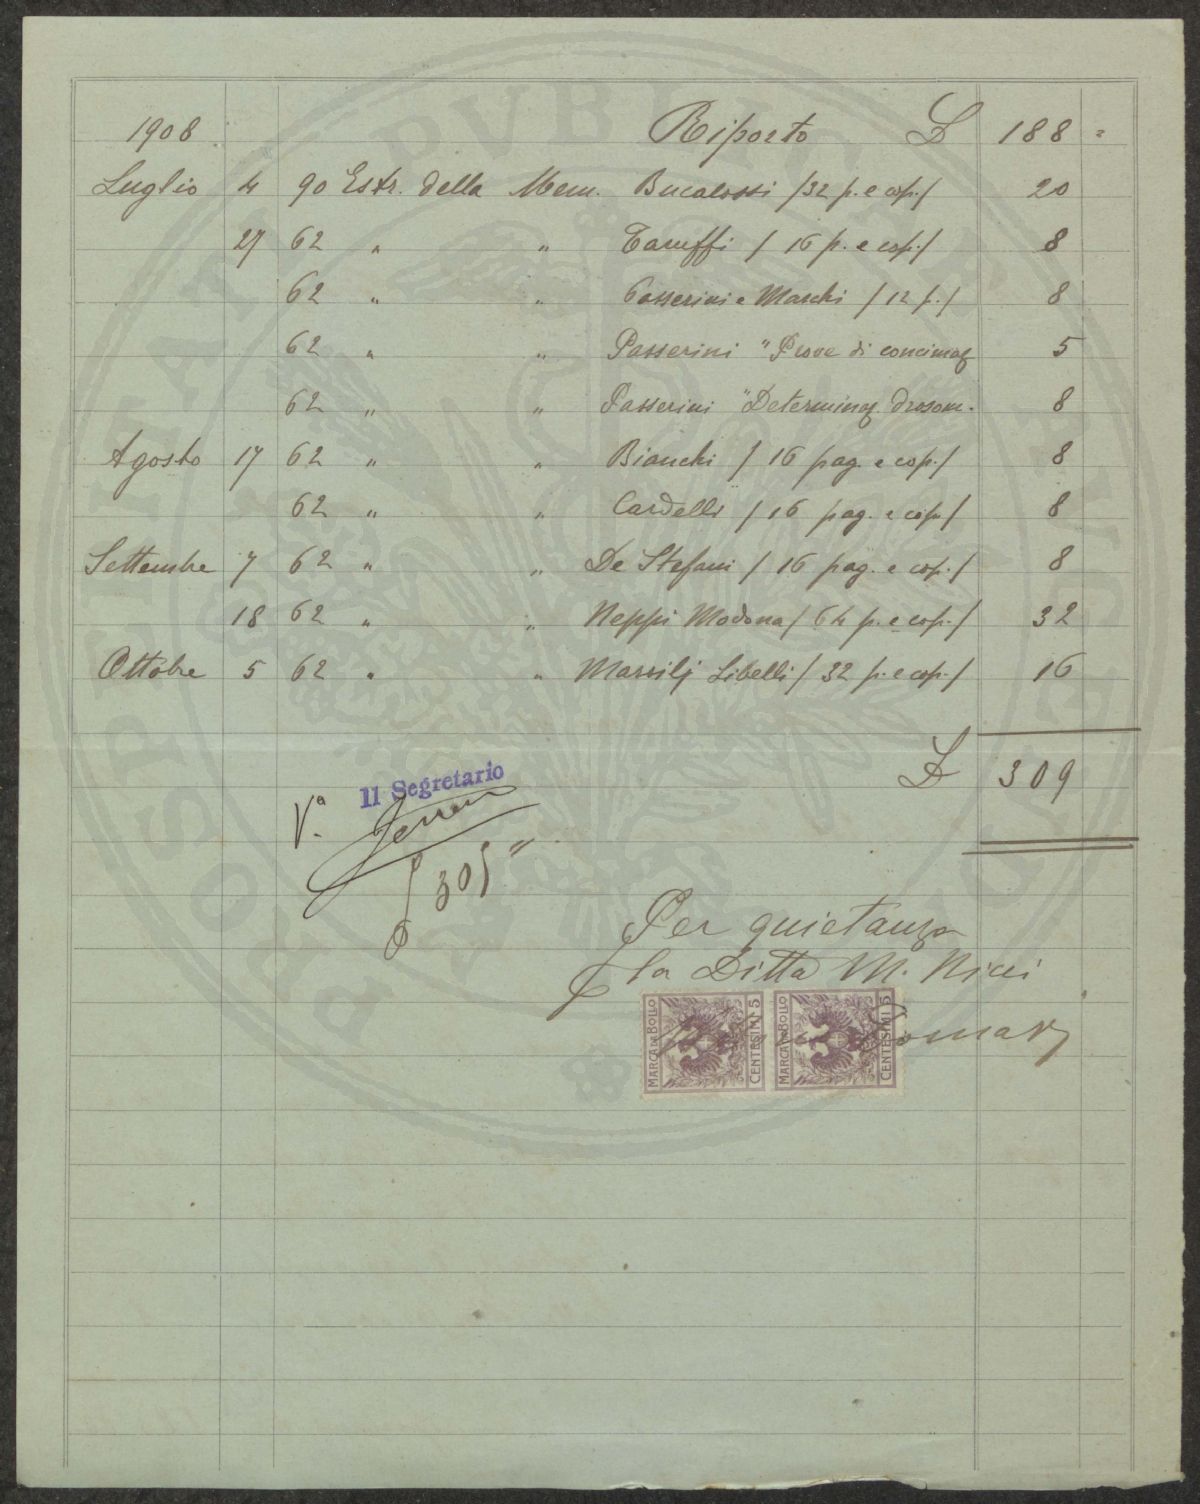 1908 Riporto £ 188 =
Luglio 4 90 Estr. della Mem. Bucalossi /32 p. e cop./ 20
27 62 " " Taruffi / 16 p. e cop./ 8
62 " " Passerini e Marchi / 12 p./ 8
62 " " Passerini "Prove di concimaz 5
62 " " Passerini "Determinaz. drosom. 8
Agosto 17 62 " " Bianchi / 16 pag. e cop./ 8
62 " " Cardelli / 16 pag. e cop/ 8
Settembre 7 62 " " De Stefani / 16 pag. e cop./ 8
18 62 " " Neppi Modona / 64 p. e cop./ 32
Ottobre 5 62 " " Marsilj Libelli / 32 p. e cop./ 16
£ 309
Il Segretario
V.º
£ 305 "
Per quietanza
la Ditta M. Ricci
MARCA DA BOLLO CENTESIMI 5
MARCA DA BOLLO CENTESIMI 5